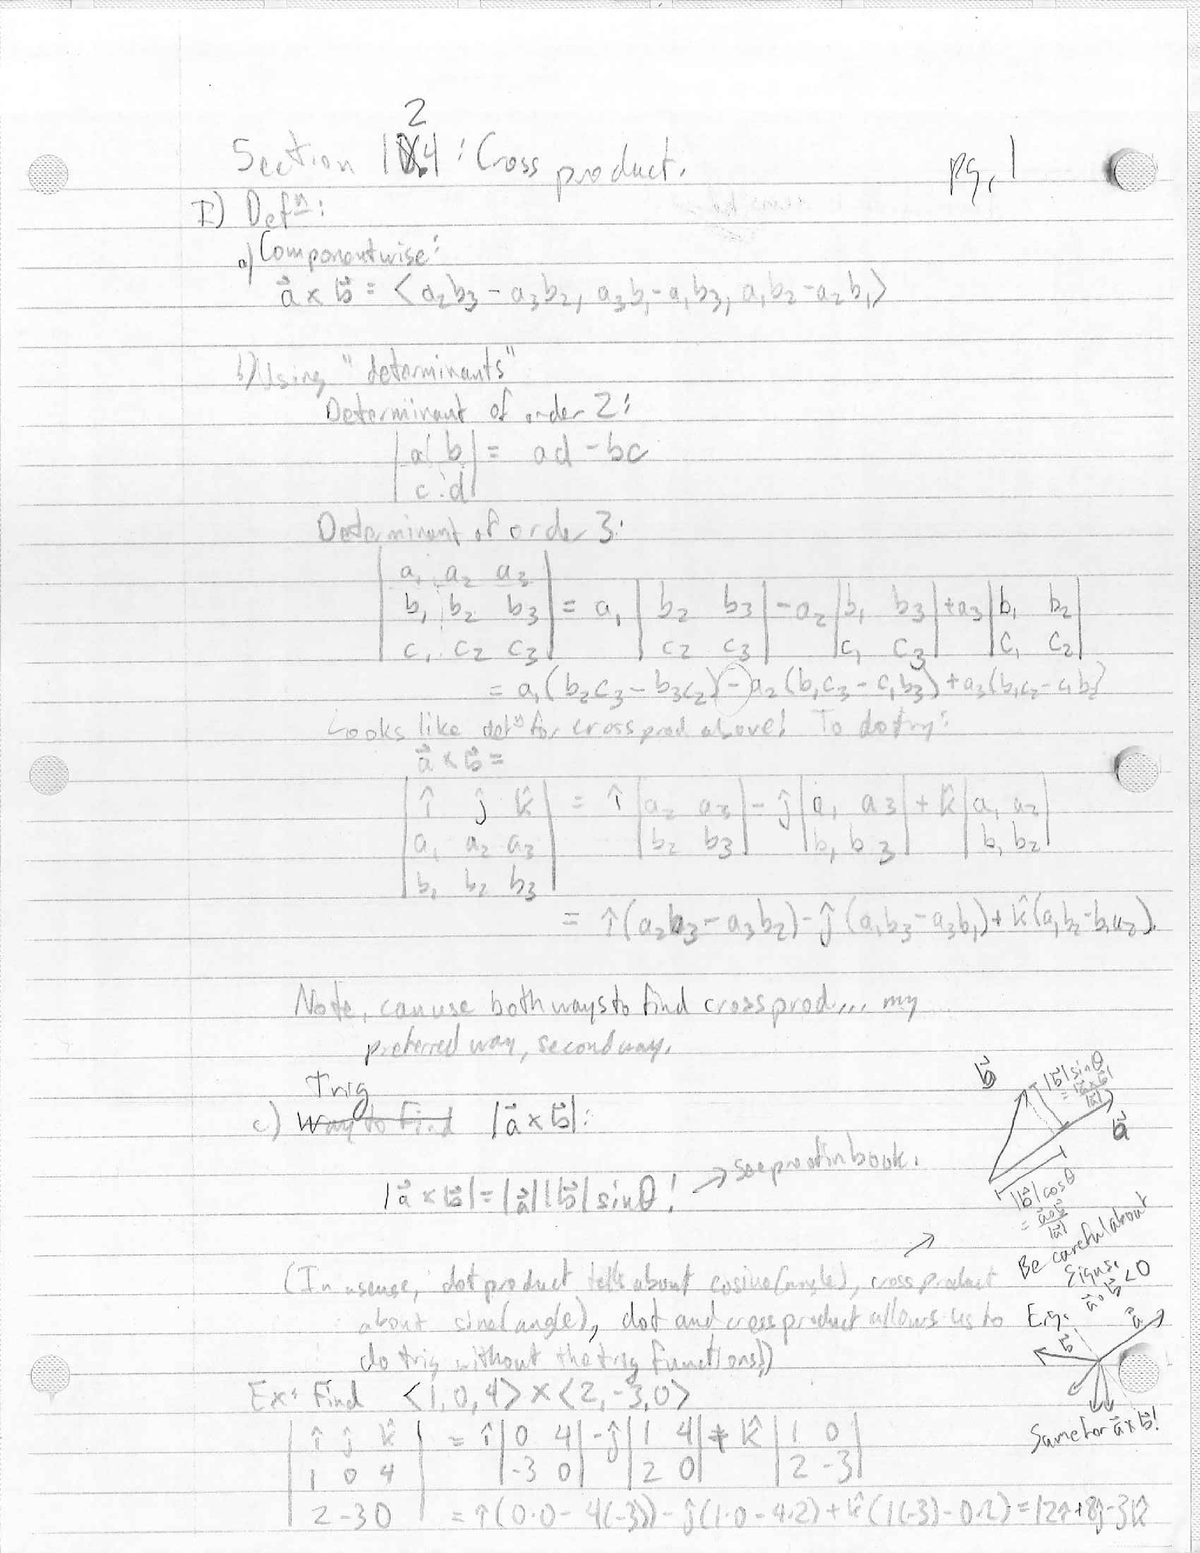 Section 12.4: Cross product.
pg. 1
I) Defⁿ:
a) Componentwise:
a⃗ × b⃗ = <a₂b₃ - a₃b₂, a₃b₁ - a₁b₃, a₁b₂ - a₂b₁>
b) Using "determinants"
Determinant of order 2:
|a b| = ad - bc
|c d|
Determinant of order 3:
|a₁ a₂ a₃|
|b₁ b₂ b₃| = a₁ |b₂ b₃| - a₂ |b₁ b₃| + a₃ |b₁ b₂|
|c₁ c₂ c₃| |c₂ c₃| |c₁ c₃| |c₁ c₂|
= a₁(b₂c₃ - b₃c₂) - a₂(b₁c₃ - c₁b₃) + a₃(b₁c₂ - c₁b₂)
Looks like defⁿ for cross prod above! To do try:
a⃗ × b⃗ =
|î ĵ k̂| = î |a₂ a₃| - ĵ |a₁ a₃| + k̂ |a₁ a₂|
|a₁ a₂ a₃| |b₂ b₃| |b₁ b₃| |b₁ b₂|
|b₁ b₂ b₃|
= î(a₂b₃ - a₃b₂) - ĵ(a₁b₃ - a₃b₁) + k̂(a₁b₂ - b₁a₂).
Note, can use both ways to find cross prod.... my
preferred way, second way.
Trig
c) Way to find |a⃗ × b⃗|:
|a⃗ × b⃗| = |a⃗||b⃗| sinθ! → see proof in book.
b⃗
|b⃗| sinθ
= |a⃗×b⃗|
|a⃗|
a⃗
|b⃗| cosθ
= a⃗∘b⃗
|a⃗|
(In a sense, dot product tells about cosine(angle), cross product
about sine(angle), dot and cross product allows us to
do trig without the trig functions!)
Be careful about
signs.
E.g. a⃗∘b⃗<0
a⃗
b⃗
Same for a⃗×b⃗!
Ex: Find <1,0,4> × <2,-3,0>
|î ĵ k̂| = î |0 4| - ĵ |1 4| + k̂ |1 0|
|1 0 4| |-3 0| |2 0| |2 -3|
|2 -3 0| = î(0·0 - 4(-3)) - ĵ(1·0 - 4·2) + k̂(1(-3) - 0·2) = 12î + 8ĵ - 3k̂